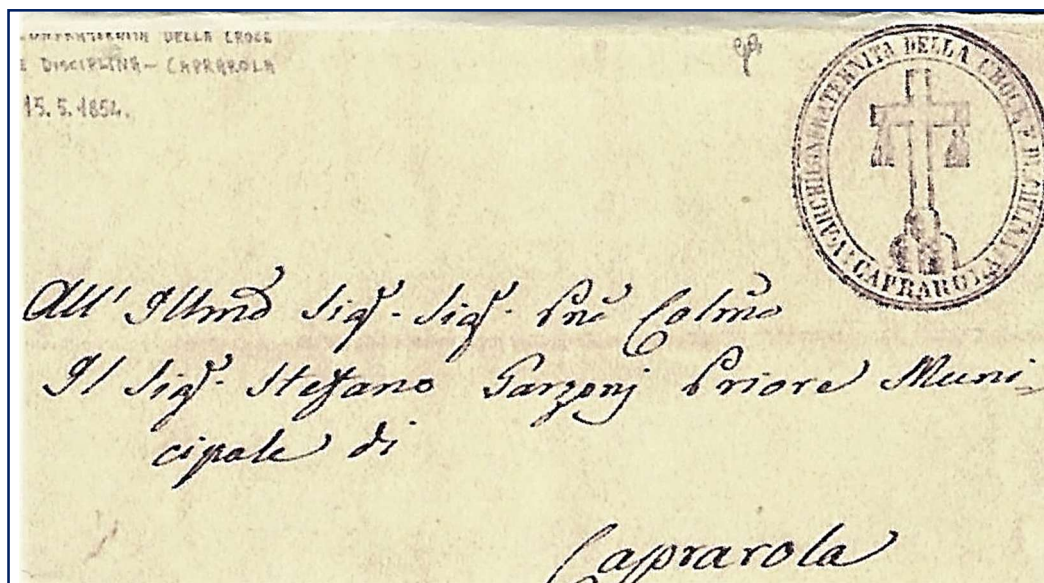 CONFRATERNITA DELLA CROCE
E DISCIPLINA - CAPRAROLA
15.5.1854.
ARCHICONFRATERNITA DELLA CROCE E DISCIPLINA
CAPRAROLA
All' Illmo Sigr. Sigr. Pne Colmo
Il Sigr. Stefano Garzonj Priore Muni
cipale di
Caprarola